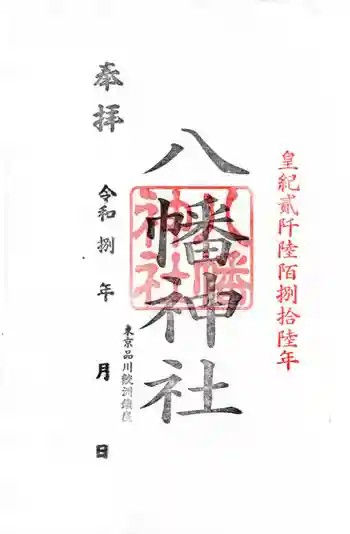 皇紀貳阡陸陌捌拾陸年
八幡神社
八幡神社
東京品川鮫洲鎮座
奉拝
令和捌年 月 日